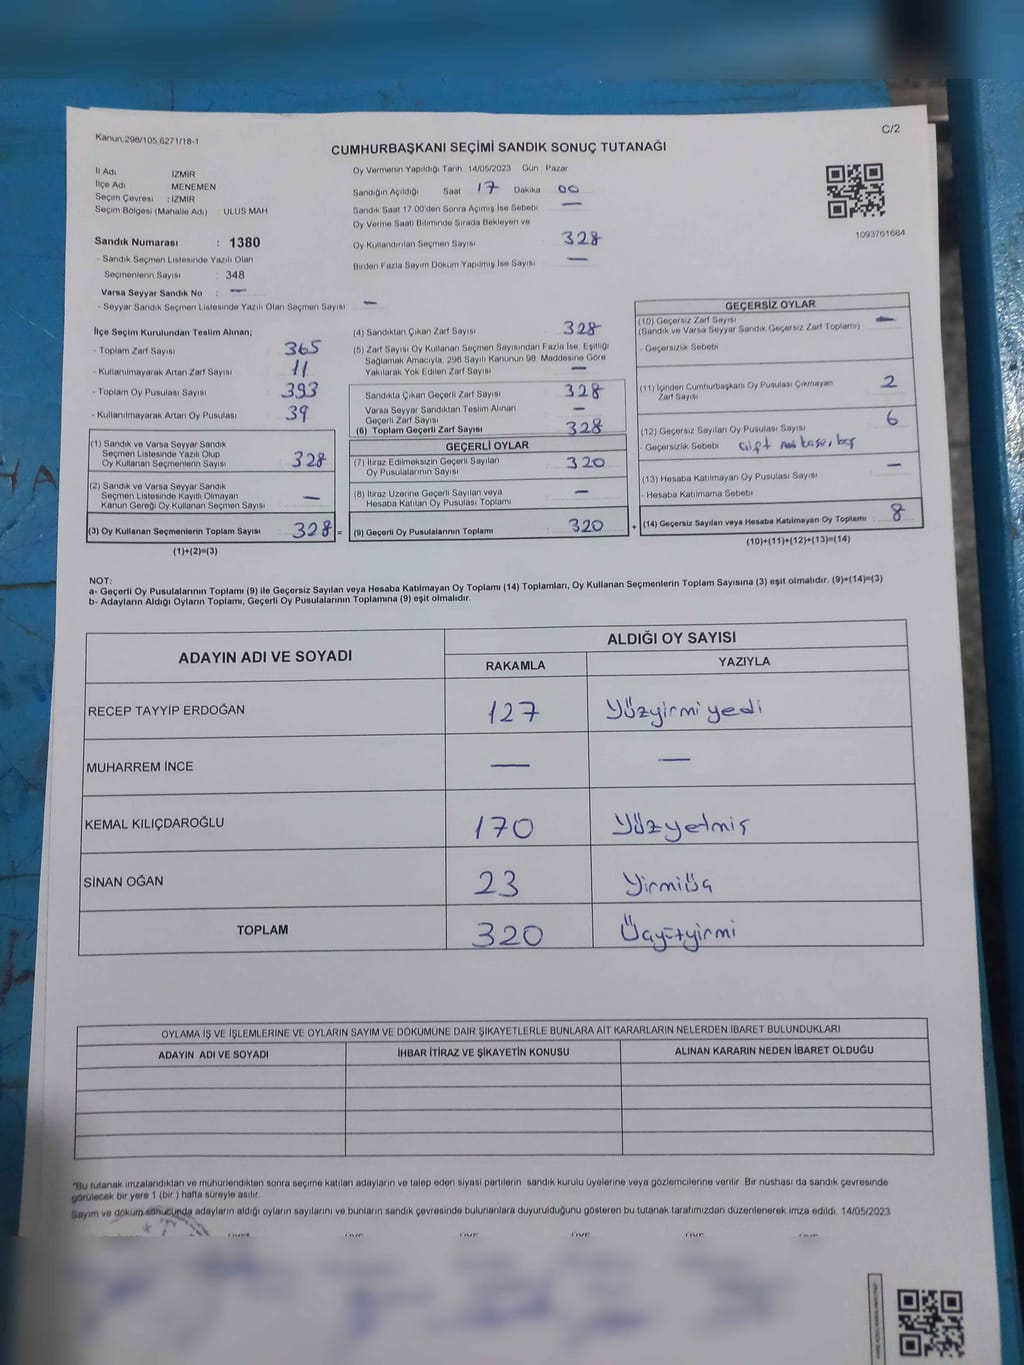 Kanun,298/105,6271/18-1
C/2
CUMHURBAŞKANI SEÇİMİ SANDIK SONUÇ TUTANAĞI
İl Adı İZMİR
İlçe Adı MENEMEN
Seçim Çevresi : İZMİR
Seçim Bölgesi (Mahalle Adı) : ULUS MAH
Sandık Numarası : 1380
- Sandık Seçmen Listesinde Yazılı Olan
Seçmenlerin Sayısı : 348
Varsa Seyyar Sandık No : —
- Seyyar Sandık Seçmen Listesinde Yazılı Olan Seçmen Sayısı —
Oy Vermenin Yapıldığı Tarih 14/05/2023 Gün Pazar
Sandığın Açıldığı Saat 17 Dakika 00
Sandık Saat 17.00'den Sonra Açımış İse Sebebi —
Oy Verme Saati Bitiminde Sırada Bekleyen ve
Oy Kullandırılan Seçmen Sayısı 328
Birden Fazla Sayım Döküm Yapılmış İse Sayısı —
1093761684
İlçe Seçim Kurulundan Teslim Alınan;
- Toplam Zarf Sayısı 365
- Kullanılmayarak Artan Zarf Sayısı 11
- Toplam Oy Pusulası Sayısı 393
- Kullanılmayarak Artan Oy Pusulası 39
(1) Sandık ve Varsa Seyyar Sandık
Seçmen Listesinde Yazılı Olup
Oy Kullanan Seçmenlerin Sayısı 328
(2) Sandık ve Varsa Seyyar Sandık
Seçmen Listesinde Kayıtlı Olmayan
Kanun Gereği Oy Kullanan Seçmen Sayısı —
(3) Oy Kullanan Seçmenlerin Toplam Sayısı 328 =
(1)+(2)=(3)
(4) Sandıktan Çıkan Zarf Sayısı 328
(5) Zarf Sayısı Oy Kullanan Seçmen Sayısından Fazla İse, Eşitliği
Sağlamak Amacıyla, 298 Sayılı Kanunun 98. Maddesine Göre
Yakılarak Yok Edilen Zarf Sayısı —
Sandıkta Çıkan Geçerli Zarf Sayısı 328
Varsa Seyyar Sandıktan Teslim Alınan
Geçerli Zarf Sayısı —
(6) Toplam Geçerli Zarf Sayısı 328
GEÇERLİ OYLAR
(7) İtiraz Edilmeksizin Geçerli Sayılan
Oy Pusulalarının Sayısı 320
(8) İtiraz Üzerine Geçerli Sayılan veya
Hesaba Katılan Oy Pusulası Toplamı —
(9) Geçerli Oy Pusulalarının Toplamı 320 +
GEÇERSİZ OYLAR
(10) Geçersiz Zarf Sayısı —
(Sandık ve Varsa Seyyar Sandık Geçersiz Zarf Toplamı)
- Geçersizlik Sebebi
(11) İçinden Cumhurbaşkanı Oy Pusulası Çıkmayan 2
Zarf Sayısı
(12) Geçersiz Sayılan Oy Pusulası Sayısı 6
- Geçersizlik Sebebi çift mükaşe, boş
(13) Hesaba Katılmayan Oy Pusulası Sayısı —
- Hesaba Katılmama Sebebi
(14) Geçersiz Sayılan veya Hesaba Katılmayan Oy Toplamı 8
(10)+(11)+(12)+(13)=(14)
NOT:
a- Geçerli Oy Pusulalarının Toplamı (9) ile Geçersiz Sayılan veya Hesaba Katılmayan Oy Toplamı (14) Toplamları, Oy Kullanan Seçmenlerin Toplam Sayısına (3) eşit olmalıdır. (9)+(14)=(3)
b- Adayların Aldığı Oyların Toplamı, Geçerli Oy Pusulalarının Toplamına (9) eşit olmalıdır.
ADAYIN ADI VE SOYADI
ALDIĞI OY SAYISI
RAKAMLA YAZIYLA
RECEP TAYYİP ERDOĞAN 127 Yüzyirmiyedi
MUHARREM İNCE — —
KEMAL KILIÇDAROĞLU 170 Yüzyetmiş
SİNAN OĞAN 23 Yirmiüç
TOPLAM 320 Üçyüzyirmi
OYLAMA İŞ VE İŞLEMLERİNE VE OYLARIN SAYIM VE DÖKÜMÜNE DAİR ŞİKAYETLERLE BUNLARA AİT KARARLARIN NELERDEN İBARET BULUNDUKLARI
ADAYIN ADI VE SOYADI İHBAR İTİRAZ VE ŞİKAYETİN KONUSU ALINAN KARARIN NEDEN İBARET OLDUĞU
"Bu tutanak imzalandıktan ve mühürlendikten sonra seçime katılan adayların ve talep eden siyasi partilerin sandık kurulu üyelerine veya gözlemcilerine verilir. Bir nüshası da sandık çevresinde
görülecek bir yere 1 (bir ) hafta süreyle asılır.
Sayım ve döküm sonucunda adayların aldığı oyların sayılarını ve bunların sandık çevresinde bulunanlara duyurulduğunu gösteren bu tutanak tarafımızdan düzenlenerek imza edildi. 14/05/2023